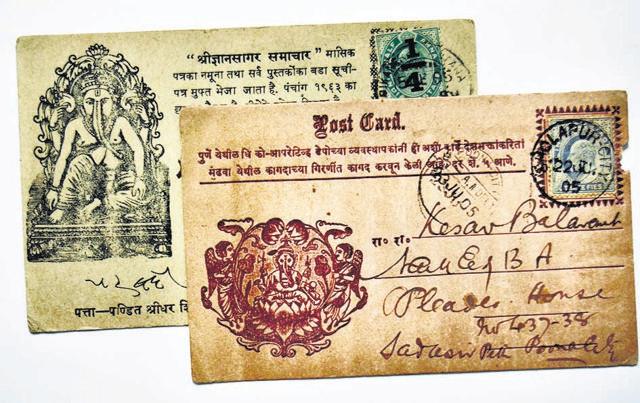 “श्रीज्ञानसागर समाचार” मासिक
पत्रका नमूना तथा सर्व पुस्तकोंका बडा सूची-
पत्र मुफ्त भेजा जाता है. पंचांग १९६३ का
1/4
पत्ता—पण्डित श्रीधर
Post Card.
पुणें येथील धि को-आपरेटिव्ह डेपोच्या व्यवस्थापकांनी ही अशी कार्डे
मुंढवा येथील कागदाच्या गिरणींत कागद करवून केली आहेत. दर शें. ५ आणे.
SHOLAPUR CITY
22 JU
05
JU 05
रा० रा० Kesav Balavant
B A
Pleader House
No 437-38
Sadasiv Peth Poona City